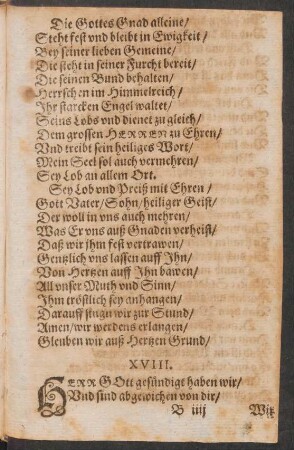 Die Gottes Gnad alleine/
Steht fest vnd bleibt in Ewigkeit/
Bey seiner lieben Gemeine/
Die steht in seiner Furcht bereit/
Die seinen Bund behalten/
Herrschen im Himmelreich/
Ihr starcken Engel waltet/
Seins Lobs vnd dienet zu gleich/
Dem grossen HERREN zu Ehren/
Vnd treibt sein heiliges Wort/
Mein Seel sol auch vermehren/
Sey Lob an allem Ort.
Sey Lob vnd Preiß mit Ehren/
Gott Vater/Sohn/heiliger Geist/
Der woll in vns auch mehren/
Was Er vns auß Gnaden verheist/
Daß wir jhm fest vertrawen/
Gentzlich vns lassen auff Jhn/
Von Hertzen auff Jhn bawen/
All vnser Muth vnd Sinn/
Jhm tröstlich sey anhangen/
Darauff singn wir zur Stund/
Amen/wir werdens erlangen/
Gleuben wir auß Hertzen Grund/
XVIII.
HERR GOtt gesündiget haben wir/
Vnd sind abgewichen von dir/
B iiij Wir